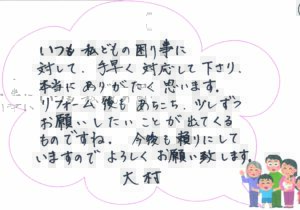 いつも私どもの困り事に
対して、手早く対応して下さり、
本当にありがたく思います。
リフォーム後もあちこち、少しずつ
お願いしたいことが出てくる
ものですね。今後も頼りにして
いますのでよろしくお願い致します。
大村